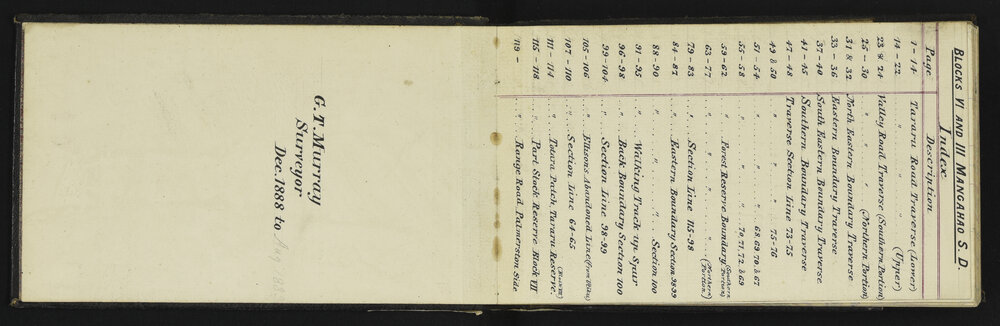 G.T. Murray
Surveyor
Dec. 1888 to
BLOCKS VI AND III MANGAHAO S.D.
Index.
Page Description
1 - 14 Tararu Road Traverse (Lower)
14 - 22 " " " (Upper)
23 & 24 Valley Road Traverse (Southern Portion)
25 - 30 " " " (Northern Portion)
31 & 32 North Eastern Boundary Traverse
33 - 36 Eastern Boundary Traverse
37 - 40 South Eastern Boundary Traverse
41 - 45 Southern Boundary Traverse
47 - 48 Traverse Section Line 73-75
49 & 50 " " " 75-76
51 - 54 " " " 68, 69, 70 & 67
55 - 58 " " " 70, 71, 72 & 69
59 - 62 Forest Reserve Boundary (Southern Portion)
63 - 77 " " " (Northern Portion)
79 - 83 Section Line 115-98
84 - 87 Eastern Boundary Section 98 & 99
88 - 90 " " Section 100
91 - 95 Walking Track up Spur
96 - 98 Back Boundary Section 100
99 - 104 Section Line 98-99
105 - 106 Ellisons Abandoned Line
107 - 110 Section Line 64-65
111 - 114 Totara Patch, Tararu Reserve.
115 - 118 Part Stock Reserve Block VII
119 - Range Road, Palmerston Side